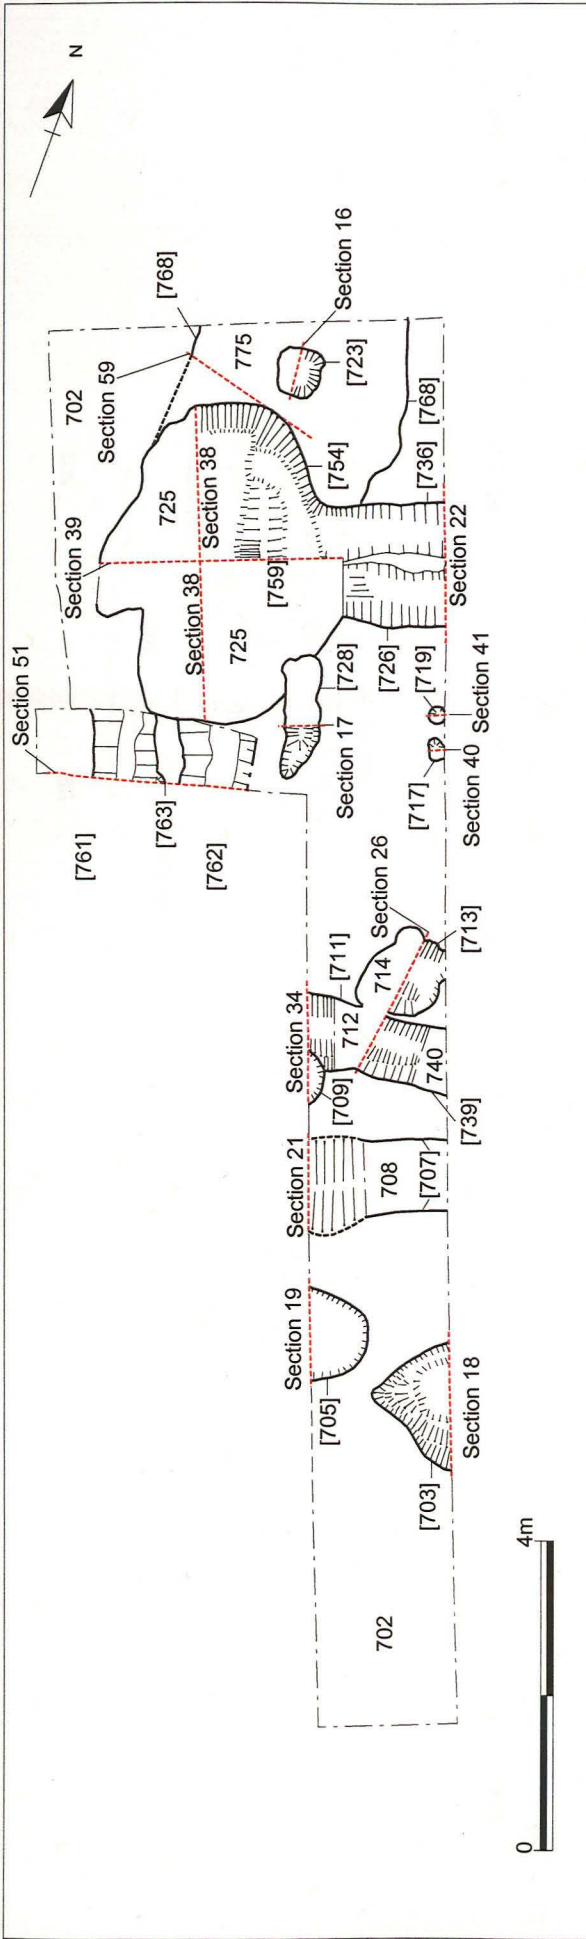 N
Section 16
[768]
[723]
775
Section 59
702
[768]
[754]
[736]
Section 38
725
Section 39
Section 22
[759]
Section 38
725
[726]
Section 51
[728]
[719]
Section 41
Section 17
[717]
Section 40
[761]
[763]
[762]
Section 26
[713]
714
[711]
712
Section 34
[709]
740
[739]
Section 21
708
[707]
Section 19
[705]
Section 18
[703]
702
0
4m